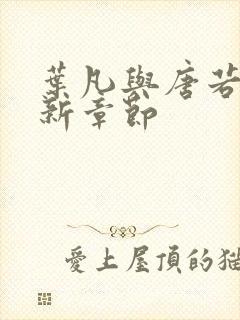 葉凡與唐若
新章節
愛上屋頂的貓